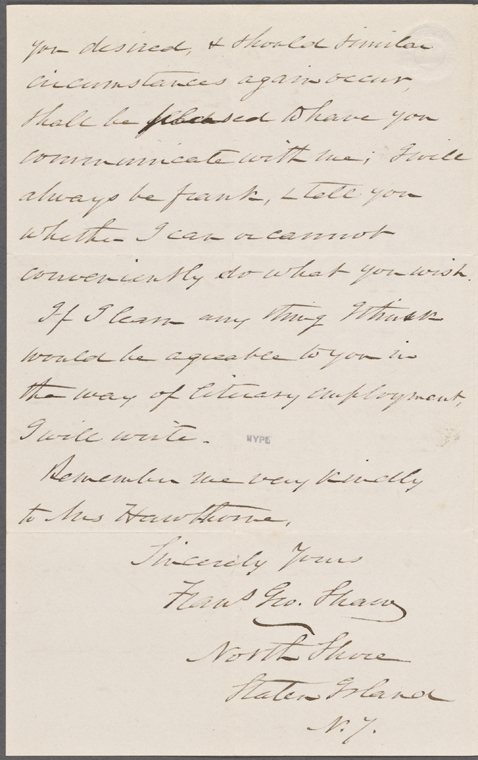 you desired, & should similar
circumstances again occur,
shall be pleased to have you
communicate with me; I will
always be frank, & tell you
whether I can or cannot
conveniently do what you wish.
If I learn any thing I think
would be agreeable to you in
the way of literary employment,
I will write.
NYPL
Remember me very kindly
to Mrs Hawthorne,
Sincerely Yours
Frans Geo. Shaw
North Shore
Staten Island
N.Y.